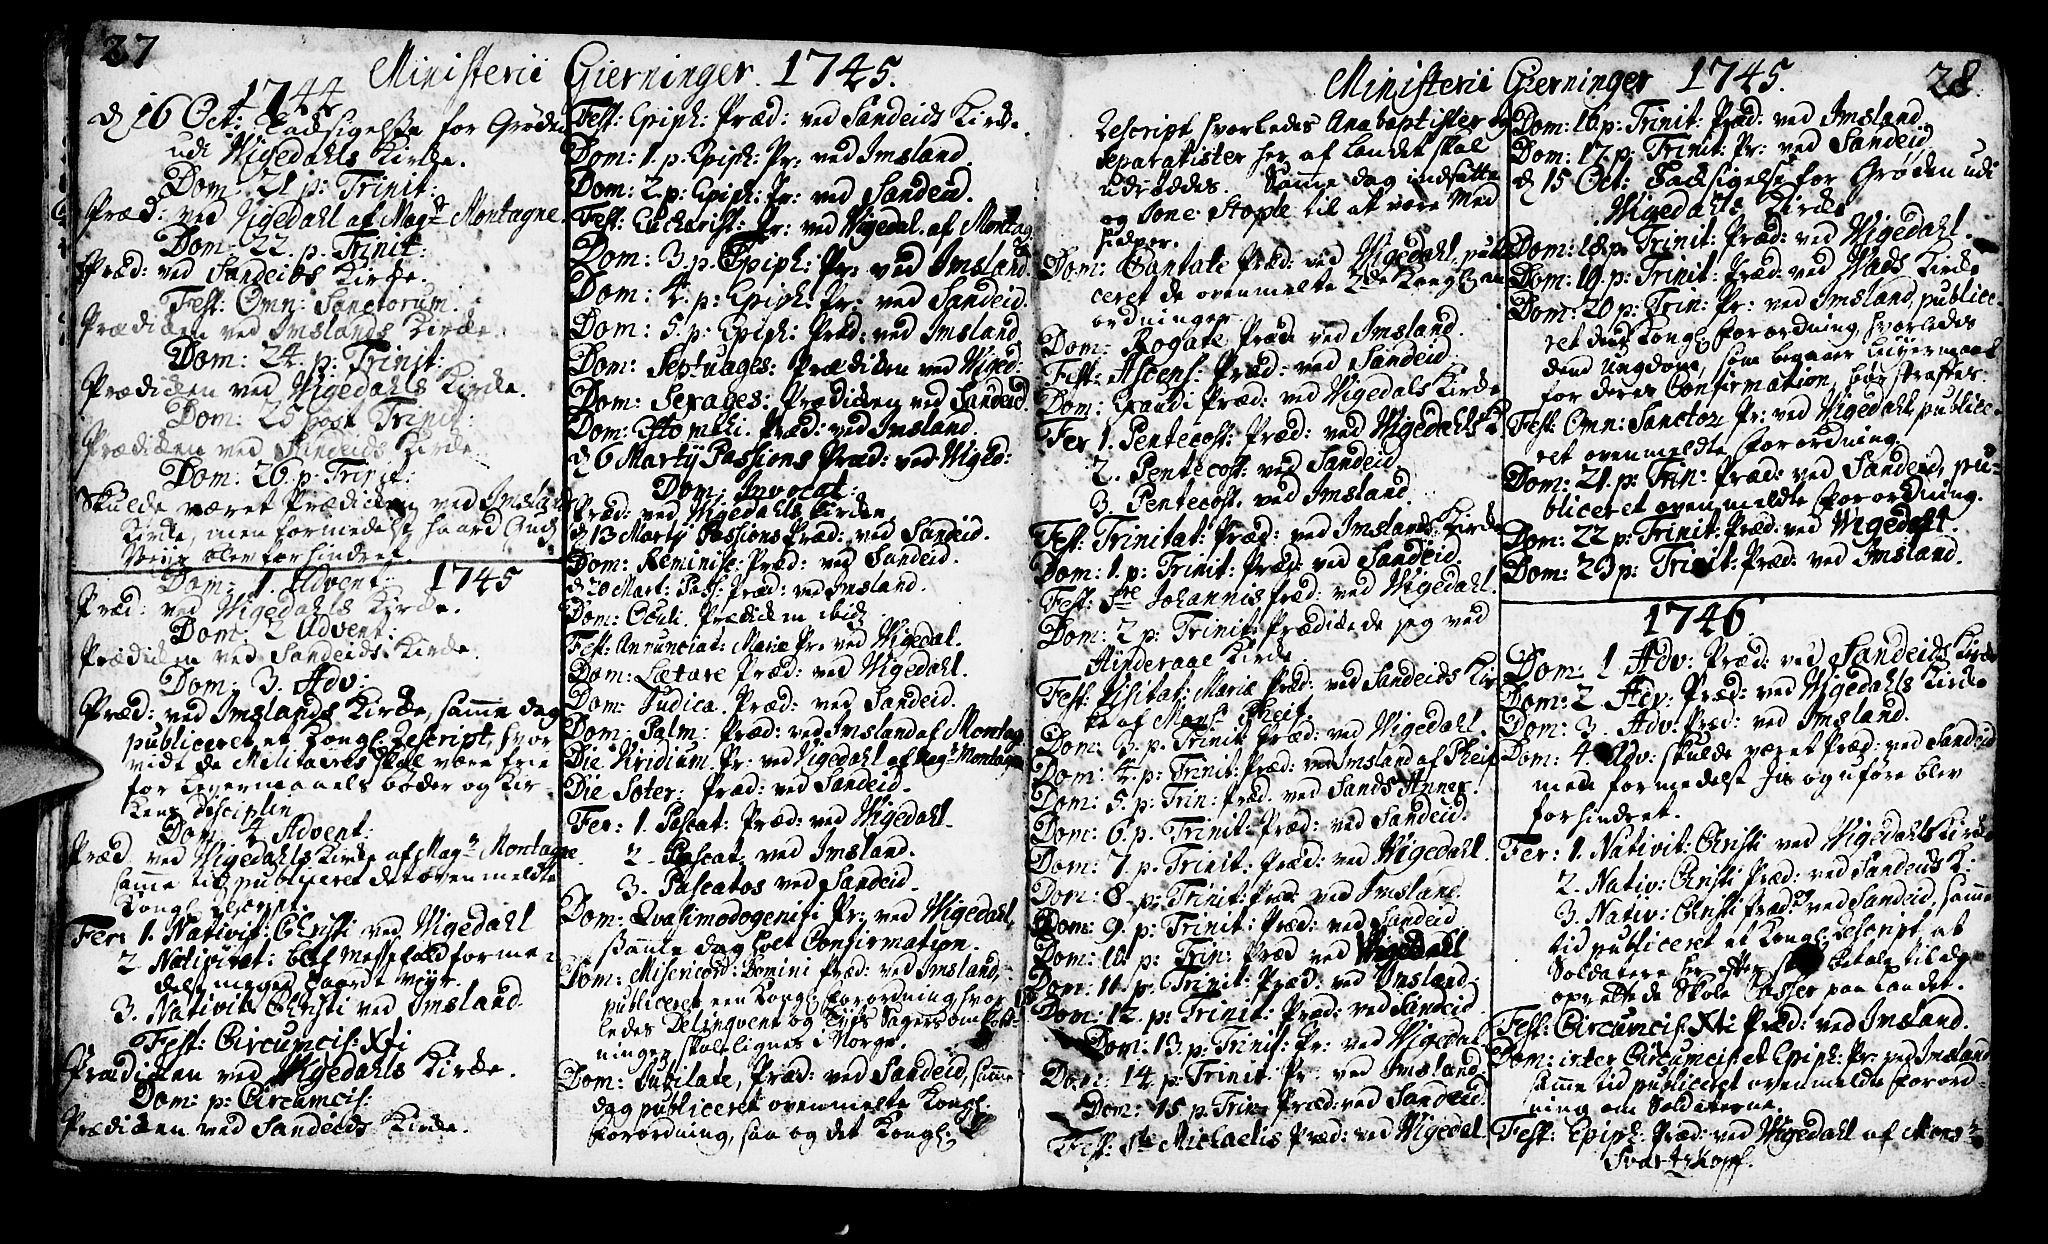 27
Ministerii Gierninger 1745.
1744
d 16 Oct: Taksigelse for Grøden
udi Wigedahls Kirke.
Dom: 21 p: Trinit:
Præd: ved Vigedahl af Magr Montagne
Dom: 22. p. Trinit:
Præd: ved Sandeids Kirke.
Fest: Omn: Sanctorum.
Prædiken ved Imslands Kirke.
Dom: 24. p: Trinit:
Prædiken ved Wigedahls Kirke.
Dom: 25 post Trinit:
Prædiken ved Sandeids Kirke.
Dom: 26. p. Trinit:
Skulde været Prædiken ved Imslands
Kirke, men formedelst haard
Veiir blev forhindret.
Dom: 1. Advent: 1745
Præd: ved Wigedahls Kirke.
Dom: 2 Advent:
Prædiken ved Sandeids Kirke.
Dom: 3. Adv:
Præd: ved Imslands Kirke, samme dag
publiceret et Kongl: Rescript, hvor
vidt de Militaires skal være frie
for Leyermaals bøder og Kir
kens disciplin
Dom: 4 Advent:
Præd ved Wigedahls Kirke af Magr Montagne
samme tid publiceret det ovenmeldte
Kongl:
Fer: 1. Nativit: Christi ved Wigedahl
2 Nativitat: blef Messefald forme-
delst meget haardt Veyr.
3. Nativit Christi ved Imsland.
Fest: Circumcis: Xti
Prædiken ved Wigedahls Kirke.
Dom: p: Circumcis:
Prædiken ved Sandeids Kirke.
Fest: Epiph: Præd: ved Sandeids Kirke.
Dom: 1. p: Epiph: Pr: ved Imsland.
Dom: 2 p: Epiph: Pr: ved Sandeid.
Fest: Eucharist: Pr: ved Wigedal. af Montag
Dom: 3. p. Epiph: Pr: ved Imsland.
Dom: 4. p: Epiph: Pr: ved Sandeid.
Dom: 5. p: Epiph: Præd: ved Imsland
Dom: Septuages: Prædiken ved Wiged:
Dom: Sexages: Prædiken ved Sandeid.
Dom: Estomihi. Præd: ved Imsland.
d 6 Martij Passions Præd: ved Wiged:
Dom: Invocat:
Præd: ved Wigedahls Kirke
d 13 Martij Passions Præd: ved Sandeid.
Dom: Reminisc: Præd: ved Sandeid.
d 20 Mart: Pass: Præd: ved Imsland.
Dom: Oculi. Prædiken ibid:
Fest: Annunciat: Mariæ Pr: ved Wigedal.
Dom: Lætare Præd: ved Wigedahl.
Dom: Judica. Præd: ved Sandeid.
Dom: Palm: Præd: ved Imsland af Montag
Die Viridium. Pr: ved Wigedahl af Magr Montagne
Die Soter: Præd: ved Sandeid.
Fer: 1. Pascat: Præd: ved Wigedahl.
2. Pascat: ved Imsland.
3. Pascatos ved Sandeid.
Dom: Qvasimodogeniti Pr: ved Wigedahl,
samme dag holt Confirmation.
Dom: Misericord: Domini Præd: ved Imsland,
publiceret een Kongl: Forordning hvor
ledes Delinqvent og Tyfs Sagers om
ninger skal lignes i Norge.
Dom: Jubilate, Præd: ved Sandeid, samme
dag publiceret ovenmelte Kongl:
Forordning, saa og det Kongl:
Ministerii Gierninger 1745.
28
Rescript hvorledes Anabaptister og
Separatister her af Landet skal
udrøddes. Samme dag indsatte
og Sone Stople til at være Med
hielper.
Dom: Cantate Præd: ved Wigedahl, publi
ceret de ovenmelte 2de Kongl:
ordninger.
Dom: Rogate Præd: ved Imsland.
Fest: Ascens: Præd: ved Sandeid.
Dom: Exaudi Præd: ved Wigedals Kirke
Fer 1. Pentecost: Præd: ved Wigedahls K
2. Pentecost: ved Sandeid.
3. Pentecost. ved Imsland.
Fest: Trinitat: Præd: ved Imslands Kirke
Dom: 1. p: Trinit: Præd: ved Sandeid.
Fest: Ste Johannis Præd: ved Wigedahl.
Dom: 2 p: Trinit: Prædikede jeg ved
Hinderaae Kirke.
Fest: Visitat: Mariæ Præd: ved Sandeids Kir
ke af Monsr Theis.
Dom: 3. p. Trinit Præd: ved Wigedahl.
Dom: 4. p: Trinit: Præd: ved Imsland af Theis
Dom: 5. p: Trin: Præd. ved Sands Annex.
Dom: 6. p. Trinit: Præd: ved Sandeid.
Dom: 7. p. Trinit: Præd: ved Wigedahl.
Dom: 8. p: Trinit: Præd: ved Imsland.
Dom: 9. p: Trinit: Præd: ved Sandeid
Dom: 10. p: Trin: Præd ved Wigedahl
Dom: 11. p: Trinit: Præd: ved Imsland:
Dom: 12. p: Trinit: Præd: ved Sandeid
Dom: 13 p: Trinit: Pr: ved Wigedal.
Dom: 14. p: Trinit. Pr: ved Imsland
Dom: 15 p. Trin: Præd: ved Sandeid.
Fest: St Michaelis Præd: ved Wigedal
Dom: 16. p: Trinit: Præd: ved Imsland.
Dom: 17. p: Trinit: Pr: ved Sandeid,
d 15 Oct: Taksigelse for Grøden udi
Wigedahls Kirke
Dom: 18. p: Trinit: Præd: ved Wigedahl.
Dom: 19. p: Trinit: Præd: ved Wads Kirke
Dom: 20 p: Trin: Pr: ved Imsland, publice-
ret den Kongl: Forordning, hvorledes
dend Ungdom, som begaaer Leyermaal
for deres Confirmation, bør straffes.
Fest: Omn: Sanctor Pr: ved Wigedahl, publice-
ret ovenmeldte Forordning.
Dom: 21. p: Trin: Præd: ved Sandeid, pu-
bliceret ovenmeldte Forordning.
Dom: 22 p: Trinit: Præd: ved Wigedahl.
Dom: 23 p: Trinit: Præd: ved Imsland.
1746
Dom: 1 Adv: Præd: ved Sandeids Kirke
Dom: 2 Adv: Præd: ved Wigedahls Kirke
Dom: 3. Adv: Præd: ved Imsland.
Dom: 4. Adv: skulde været Præd: ved Sandeid
men formedelst Jis og uføre blev
forhindret.
Fer: 1. Nativit: Christi ved Wigedahls Kirke
2. Nativ: Christi Præd: ved Sandeids K.
3. Nativ: Christi Præd: ved Sandeid, samme
tid publiceret et Kongl: Rescript at
Soldatere her efter skal betale til de
oprettede Skole Casser paa Landet.
Fest: Circumcis: Xti Præd: ved Imsland.
Dom: inter Circumcis: et Epiph: Pr: ved Imsland
samme tid publiceret ovenmeldte Forord-
ning om Soldaterne.
Fest: Epiph: Præd: ved Wigedahl af Monsr
Svartzkopf.